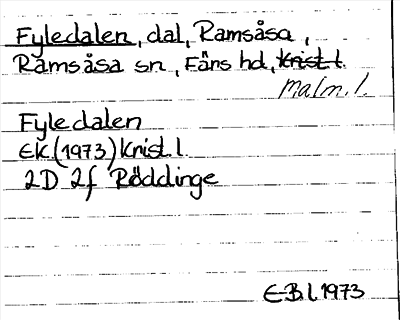 Fyledalen, dal, Ramsåsa,
Ramsåsa sn, Färs hd, Krist. l.
Malm. l.
Fyledalen
EK (1973) Krist. l.
2D 2f Röddinge
E-B.L 1973